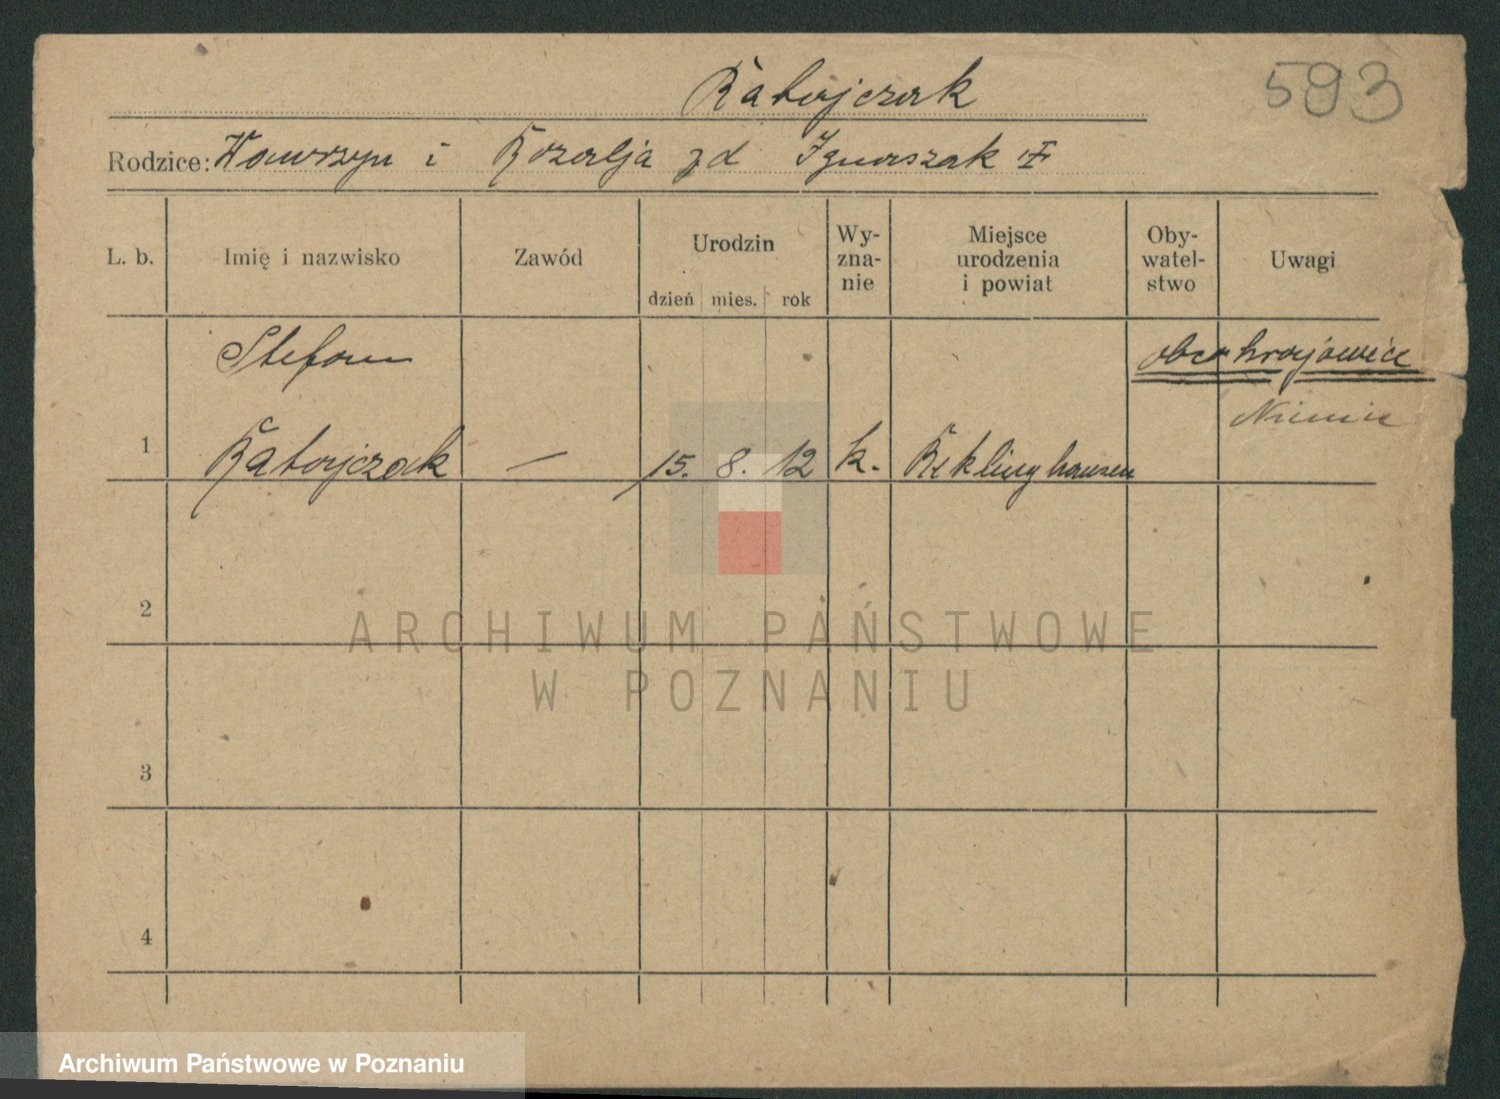 593
Ratajczak
Rodzice: Wawrzyn i Rozalja zd Ignaszak
L. b. Imię i nazwisko Zawód Urodzin dzień mies. rok Wy-zna-nie Miejsce urodzenia i powiat Oby-watel-stwo Uwagi
Stefan obcokrajowiec
Niemiec
1 Ratajczak — 15. 8. 12 k. Reklinghausen
2
3
4
ARCHIWUM PAŃSTWOWE
W POZNANIU
Archiwum Państwowe w Poznaniu